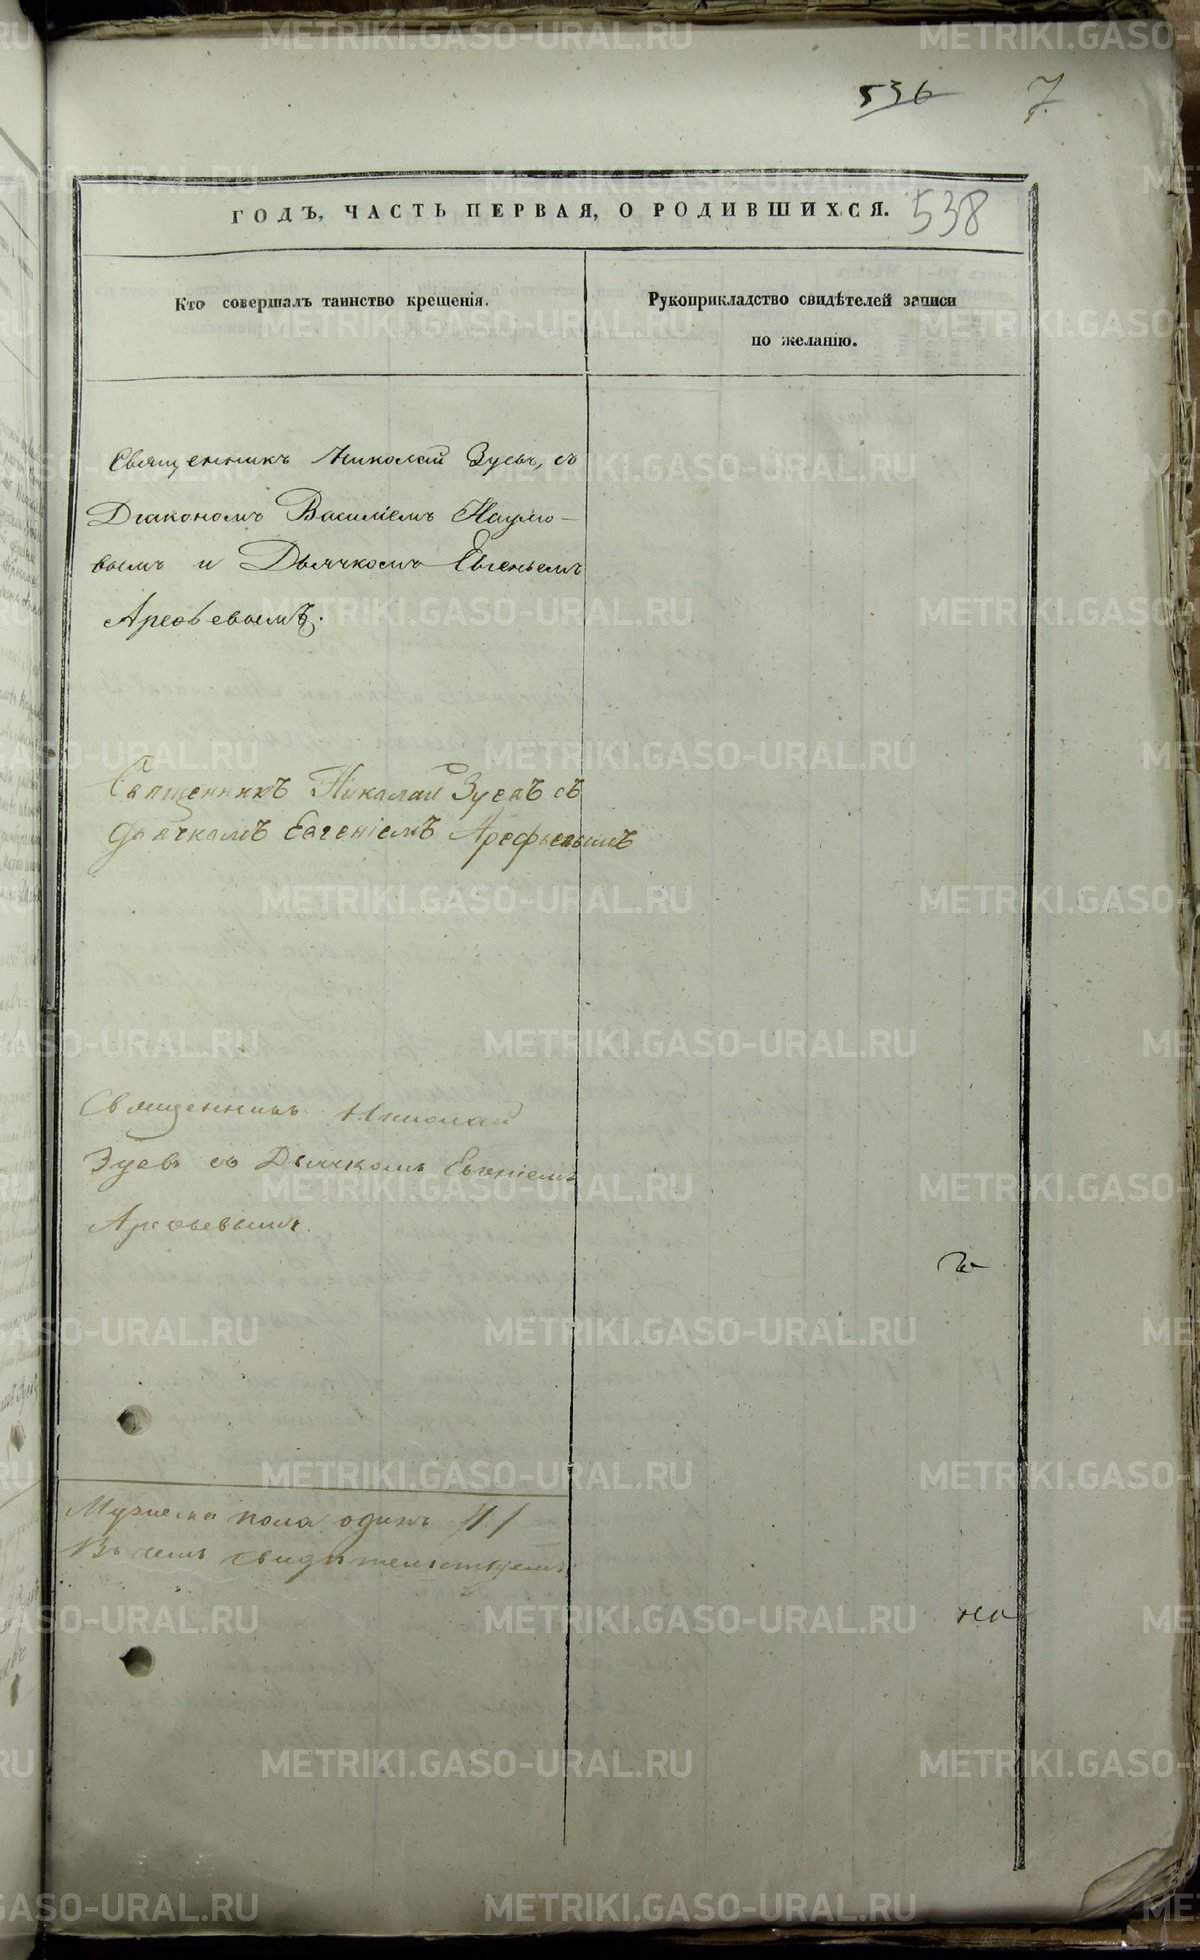 536 7
ГОДЪ, ЧАСТЬ ПЕРВАЯ, О РОДИВШИХСЯ. 538
Кто совершалъ таинство крещенія.
Рукоприкладство свидѣтелей записи
по желанію.
Священникъ Николай Зуевъ, съ
Діакономъ Василіемъ Наумо-
вымъ и Дьячкомъ Евгеньемъ
Арефьевымъ.
Священникъ Николай Зуевъ съ
дьячкамъ Евгеніемъ Арефьевымъ
Священникъ Николай
Зуевъ съ Дьячкомъ Евгеніемъ
Арефьевымъ.
Мужеска пола одинъ /1/
Въ семъ свидѣтельствуемъ
METRIKI.GASO-URAL.RU